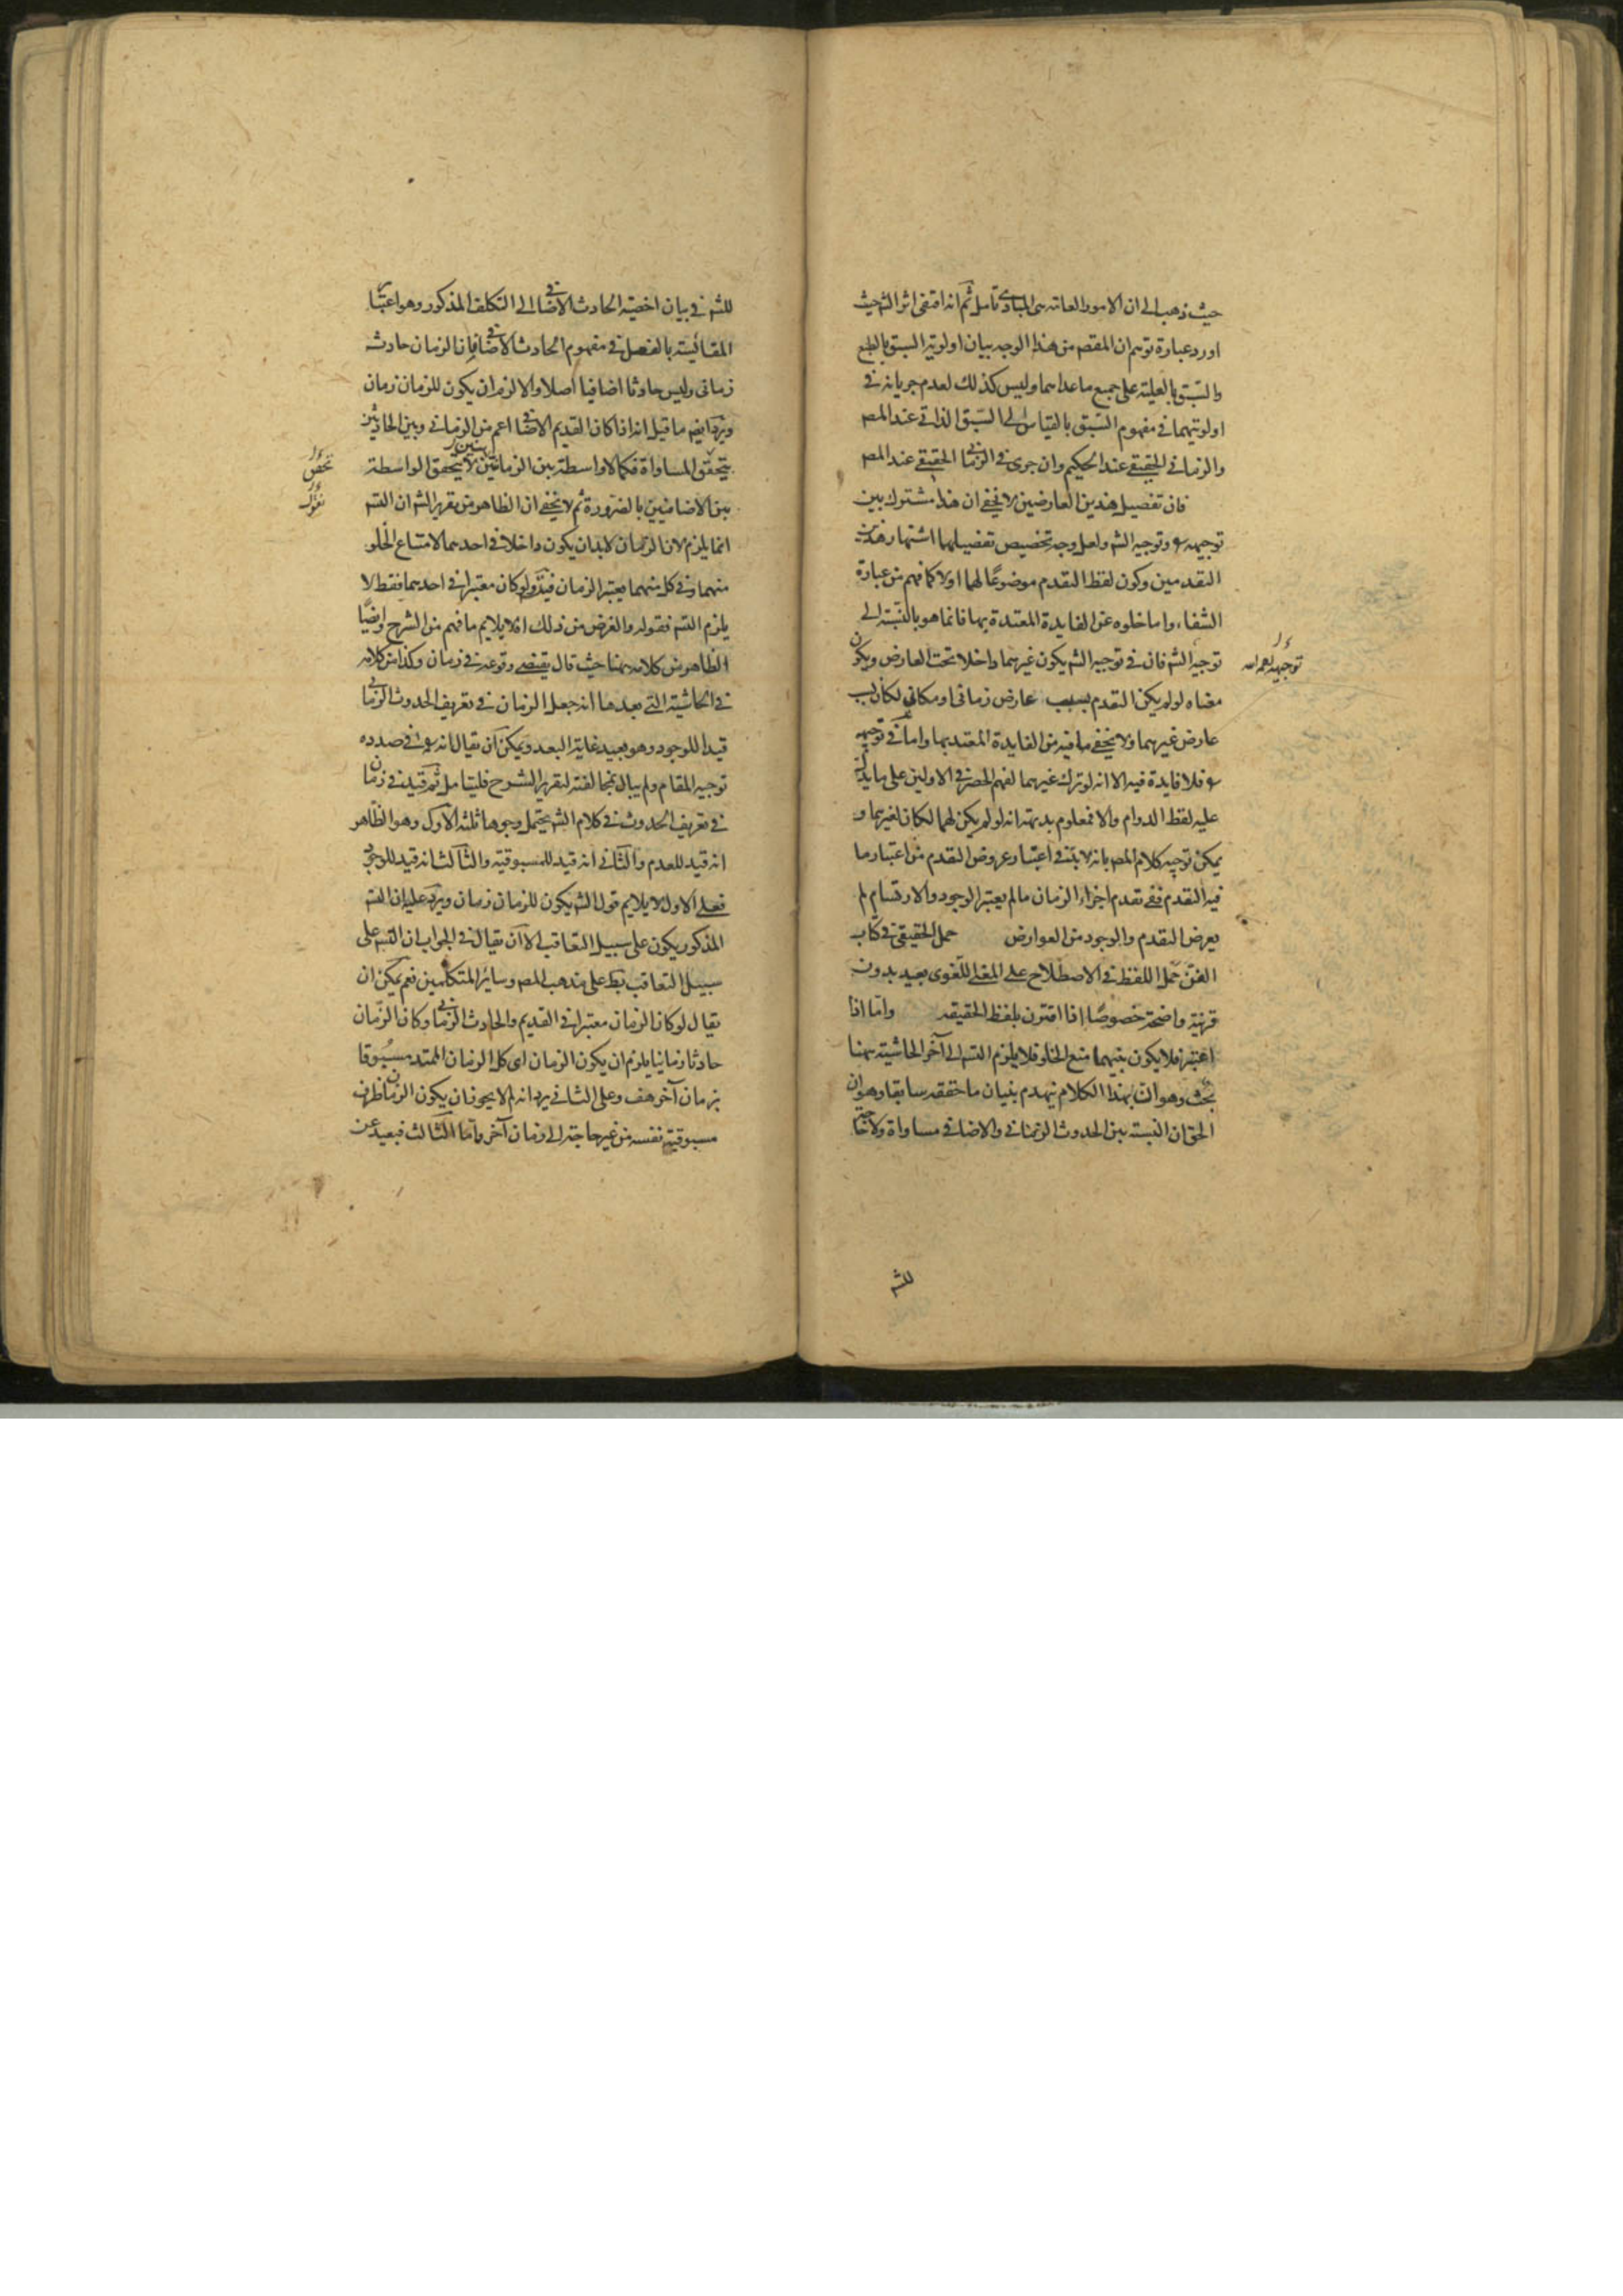 حيث ذهب الى ان الامور العامة هى المبادى تامل ثم انه اقتفى اثر الش حيث
اورد عبارة توهم ان المقصم من هذا الوجه بيان اولوية السبق بالطبع
والسبق بالعلية على جميع ما عداهما وليس كذلك لعدم جريانه فى
اولويتهما فى مفهوم السبق بالقياس الى السبق الذاتى عند المصم
والزمانى الحقيقى عند الحكيم وان جرى فى الزمانى الحقيقى عند المصم
فان تفصيل هذين العارضين لا يخفى ان هذا مشترك بين
توجيهه ره وتوجيه الش ولعل وجه تخصيص تفصيلهما اشتهار هذين
التقدمين وكون لفظ التقدم موضوعًا لهما اولا كما فهم من عبارة
الشفاء واما خلوه عن الفايدة المعتدة بها فانما هو بالنسبة الى
توجيه الش فان فى توجيه الش يكون غيرهما داخلا تحت العارض ويكون
توجيهه
معناه لو لم يكن التقدم بسبب عارض زمانى او مكانى لكان بسبب
عارض غيرهما ولا يخفى ما فيه من الفايدة المعتد بها واما فى توجيهه
ره فلا فايدة فيه الا انه لو ترك غيرهما لفهم الحصر فى الاولين على ما يدل
عليه لفظ الدوام والا فمعلوم بديهة انه لو لم يكن لهما لكان لغيرهما و
يمكن توجيه كلام المصم بانه لابد فى اعتبار عروض التقدم من اعتبار ما
فيه التقدم ففى تقدم اجزاء الزمان ما لم يعتبر الوجود والارتسام لم
يعرض التقدم والوجود من العوارض حمل الحقيقى فى كتاب
الفن حمل اللفظ فى الاصطلاح على المعنى اللغوى بعيد بدون
قرينة واضحة خصوصًا اذا اقترن بلفظ الحقيقة واما اذا
اعتبر فلا يكون بينهما منع الخلو فلا يلزم التسم الى آخر الحاشية ههنا
بحث وهو ان بهذا الكلام ينهدم بنيان ما حققه سابقا وهو ان
الحق ان النسبة بين الحدوث الزمانى والاضافى مساواة ولا حاجة
للش
للش فى بيان اخصية الحادث الاضافى الى التكلف المذكور وهو اعتبار
المقائيسة بالفصل فى مفهوم الحادث الاضافى فان الزمان حادث
زمانى وليس حادثا اضافيا اصلا والا لزم ان يكون للزمان زمان
ويرد ايضم ما قيل انه اذا كان القديم الاضافى اعم من الزمانى وبين الحادثين
يتحقق المساواة فكما لا واسطة بين الزمانيين لا يتحقق الواسطة
تحقق
بين الاضافيين بالضرورة ثم لا يخفى ان الظاهر من تقرير الش ان التسم
انما يلزم لان الزمان لابد ان يكون داخلا فى احدهما لامتناع الخلو
منهما وفى كل منهما يعتبر الزمان فيتم ولو كان معتبرا فى احدهما فقط لا
يلزم التسم فقوله والغرض من ذلك اه لا يلايم ما فهم من الشرح وايضًا
الظاهر من كلامه ههنا حيث قال يقتضى وقوعه فى زمان وكذا من كلامه
فى الحاشية التى بعدها انه جعل الزمان فى تعريف الحدوث الزمانى
قيدا للوجود وهو بعيد غاية البعد ويمكن ان يقال انه ره فى صدده
توجيه المقام ولم يبال بمخالفته لتقرير الشرح فليتامل ثم قيد فى زمان
فى تعريف الحدوث فى كلام الش يحتمل وجوها ثلثة الاول وهو الظاهر
انه قيد للعدم والثانى انه قيد للمسبوقية والثالث انه قيد للوجود
فعلى الاول لا يلايم قول الش يكون للزمان زمان ويرد عليه ان التسم
المذكور يكون على سبيل التعاقب الا ان يقال فى الجواب ان التسم على
سبيل التعاقب بط على مذهب المصم وساير المتكلمين نعم يمكن ان
يقال لو كان الزمان معتبرا فى القديم والحادث الزمانى وكان الزمان
حادثا زمانيا يلزم ان يكون الزمان اى كل الزمان الممتد مسبوقا
بزمان آخر هف وعلى الثانى يرد انه لم لا يجوز ان يكون الزمان ظرف
مسبوقية نفسه من غير حاجة الى زمان آخر واما الثالث فبعيد عن